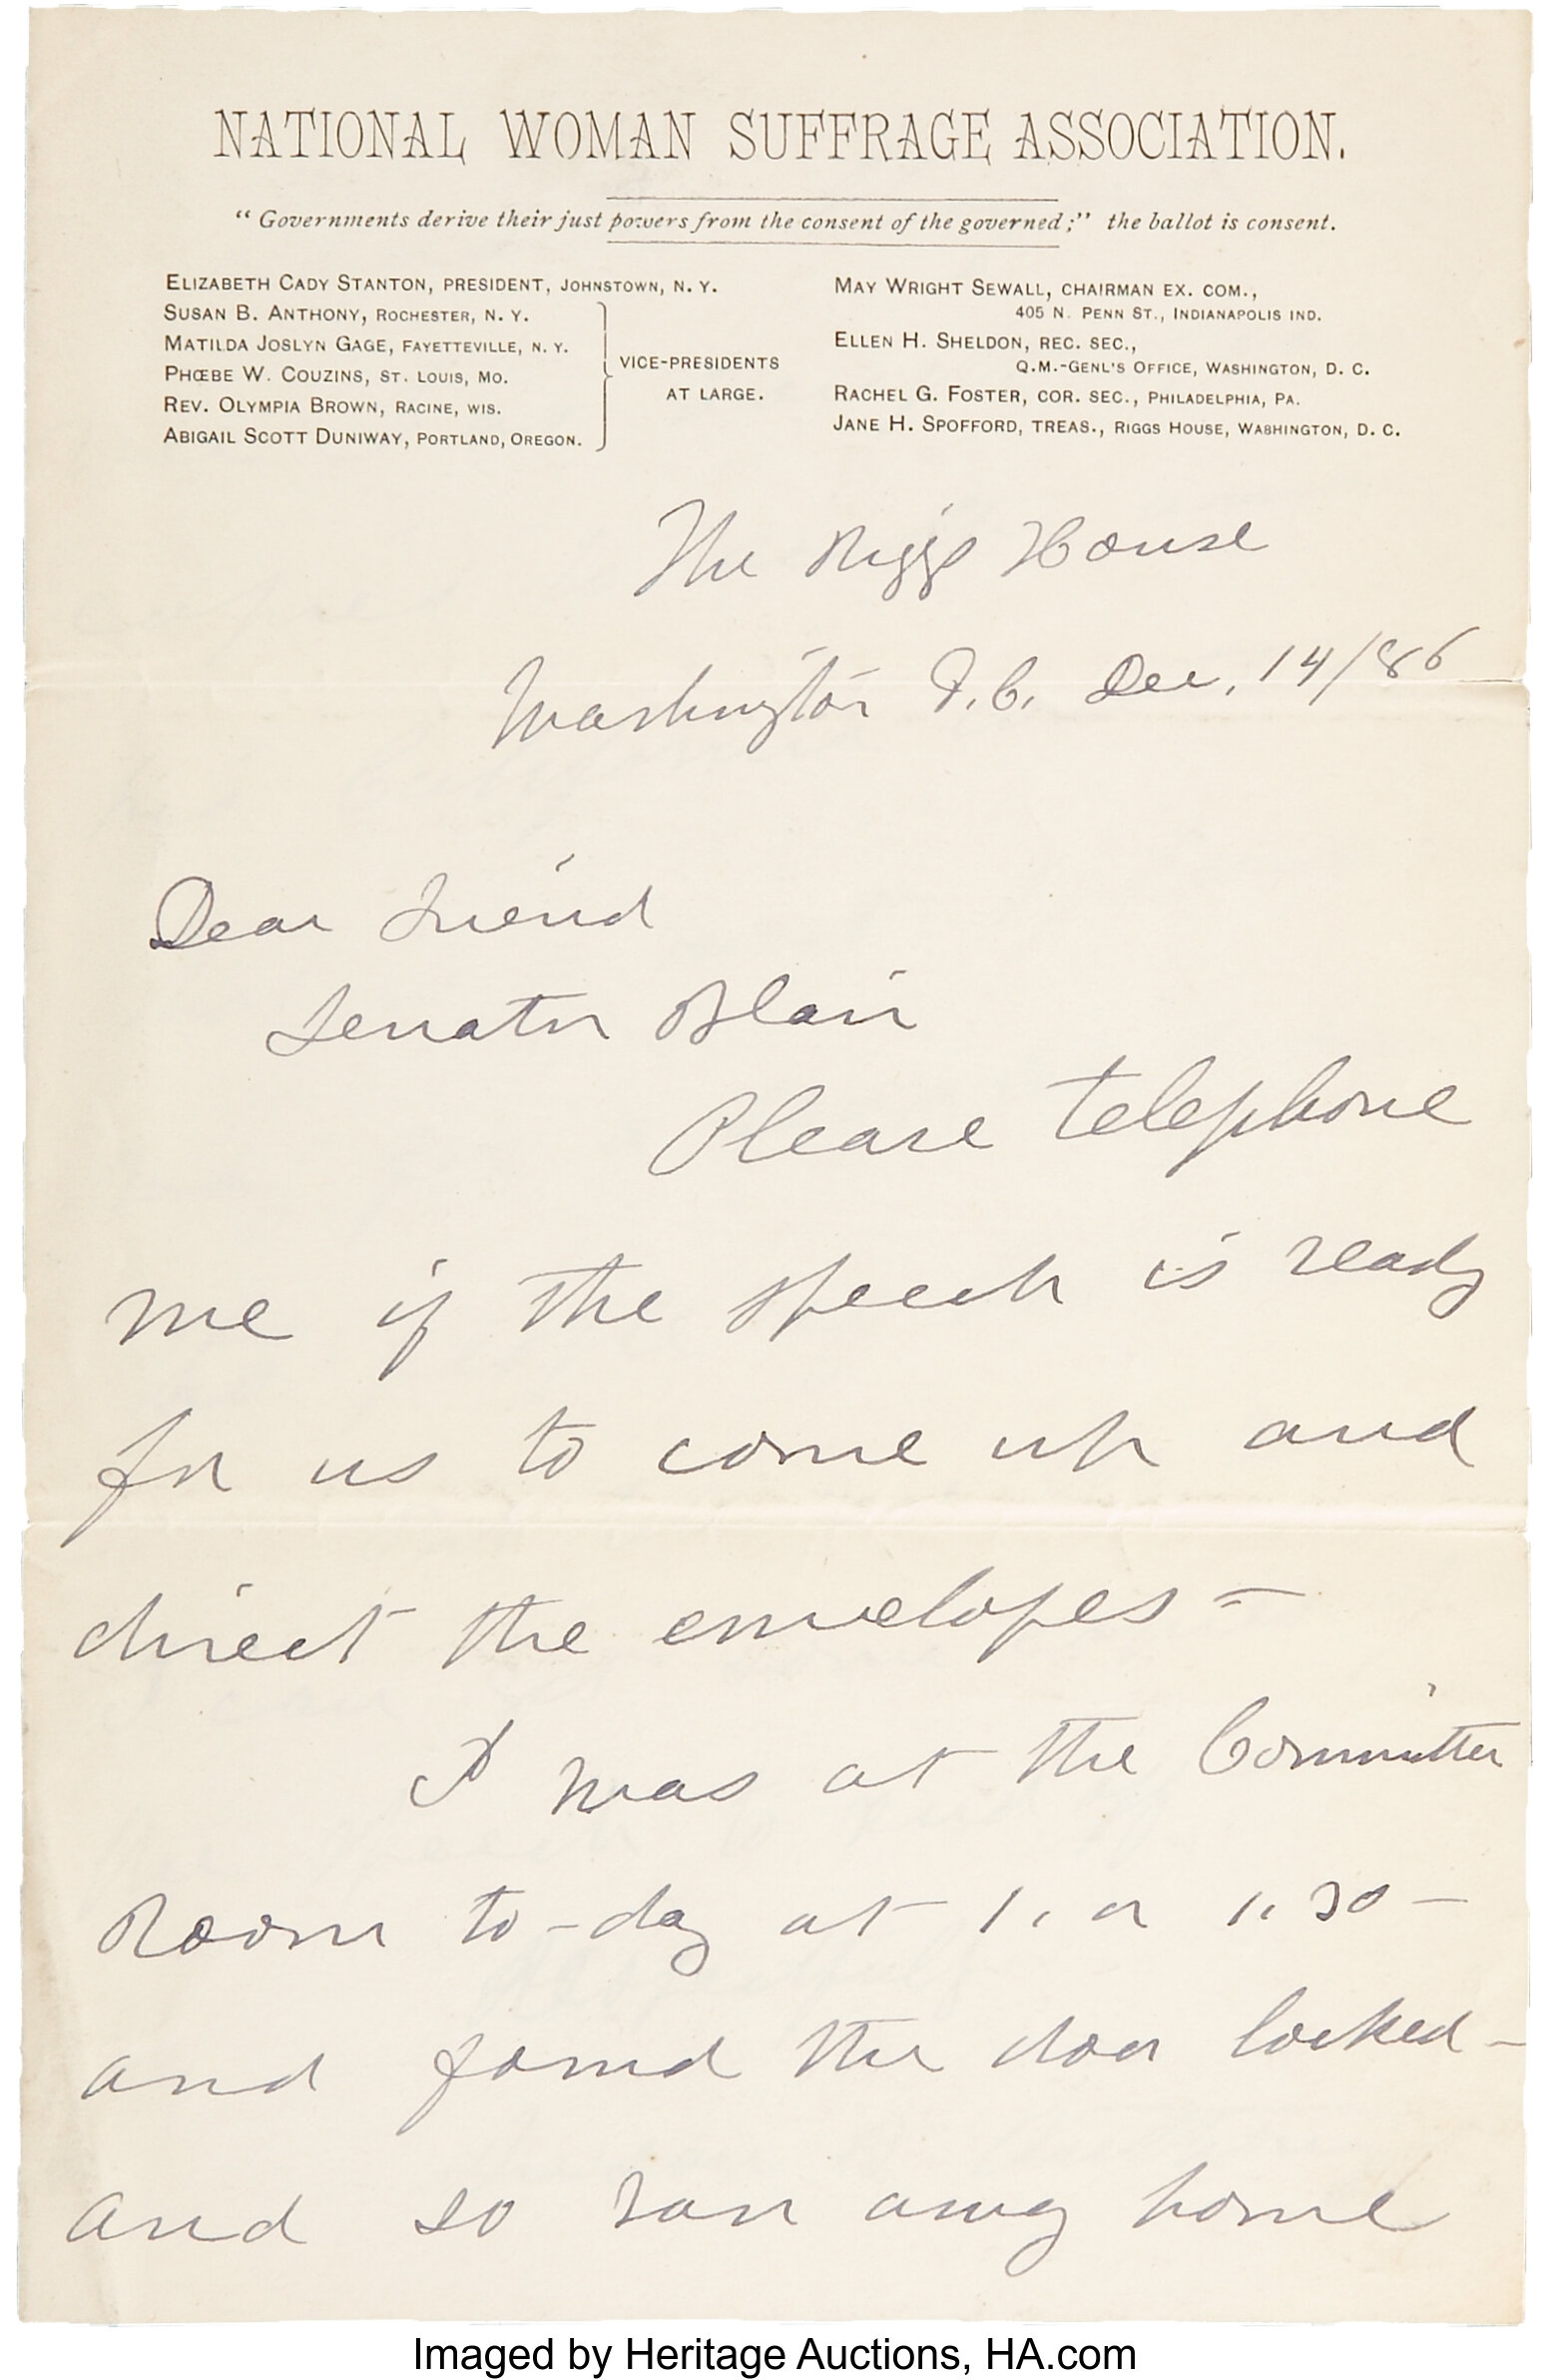 NATIONAL WOMAN SUFFRAGE ASSOCIATION.
"Governments derive their just powers from the consent of the governed;" the ballot is consent.
ELIZABETH CADY STANTON, PRESIDENT, JOHNSTOWN, N. Y.
SUSAN B. ANTHONY, ROCHESTER, N. Y.
MATILDA JOSLYN GAGE, FAYETTEVILLE, N. Y.
PHŒBE W. COUZINS, ST. LOUIS, MO.
REV. OLYMPIA BROWN, RACINE, WIS.
ABIGAIL SCOTT DUNIWAY, PORTLAND, OREGON.
VICE-PRESIDENTS
AT LARGE.
MAY WRIGHT SEWALL, CHAIRMAN EX. COM.,
405 N. PENN ST., INDIANAPOLIS IND.
ELLEN H. SHELDON, REC. SEC.,
Q.M.-GENL'S OFFICE, WASHINGTON, D. C.
RACHEL G. FOSTER, COR. SEC., PHILADELPHIA, PA.
JANE H. SPOFFORD, TREAS., RIGGS HOUSE, WASHINGTON, D. C.
The Riggs House
Washington D.C. Dec. 14/86
Dear Friend
Senator Blair
Please telephone
me if the speech is ready
for us to come up and
direct the envelopes =
I was at the Committee
Room to-day at 1, or 1.30 -
and found the door locked -
and so ran away home
Imaged by Heritage Auctions, HA.com